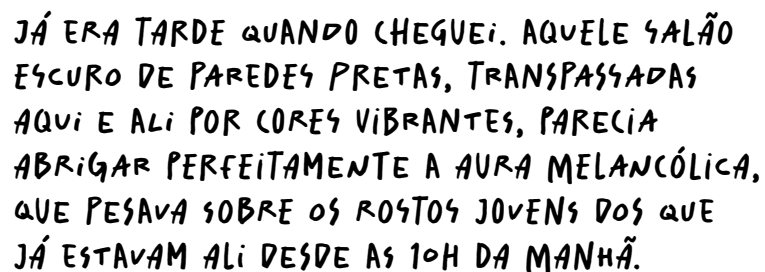 JÁ ERA TARDE QUANDO CHEGUEi. AQUELE SALÃO
ESCURO DE PAREDES PRETAS, TRANSPASSADAS
AQUi E ALi POR CORES ViBRANTES, PARECiA
ABRiGAR PERFEiTAMENTE A AURA MELANCÓLiCA,
QUE PESAVA SOBRE OS ROSTOS JOVENS DOS QUE
JÁ ESTAVAM ALi DESDE AS 10H DA MANHÃ.